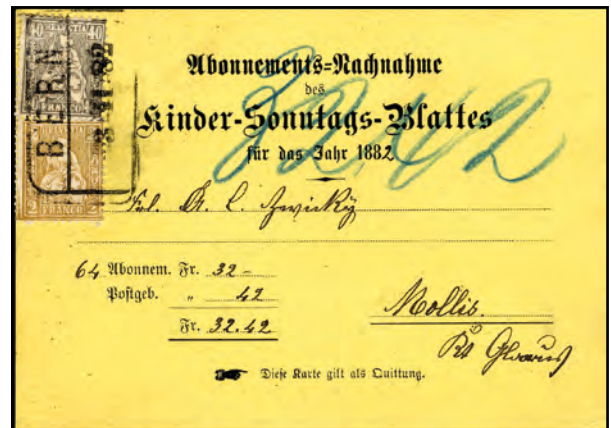 40 HELVETIA 40
FRANCO
BERN
2 FRANCO 2
32.42
Abonnements=Nachnahme
des
Kinder=Sonntags=Blattes
für das Jahr 1882
Frl. A. C. Zwicky
64 Abonnem. Fr. 32 -
Postgeb. " 42
Fr. 32.42
Mollis.
Kt Glarus
Diese Karte gilt als Quittung.